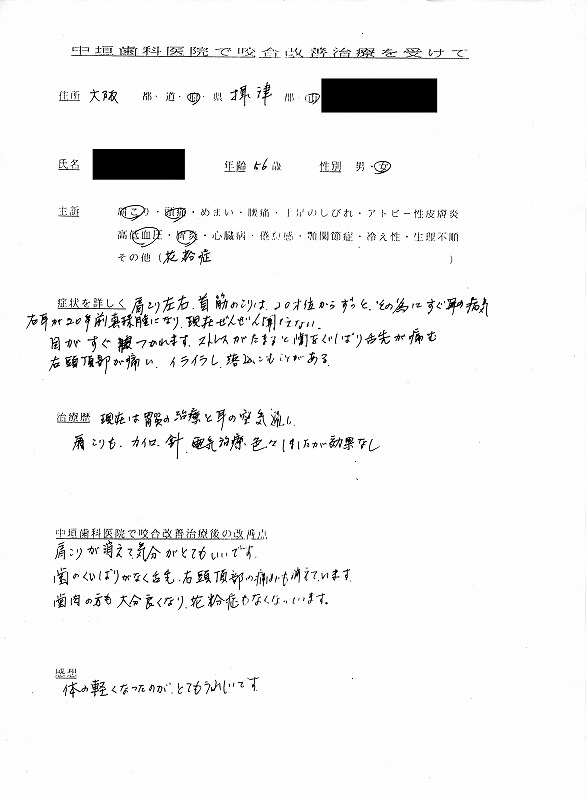 中垣歯科医院で咬合改善治療を受けて
住所 大阪 都・道・府・県 摂津 郡・市
氏名 年齢 56歳 性別 男・女
主訴 肩こり・頭痛・めまい・腰痛・手足のしびれ・アトピー性皮膚炎
高低血圧・胃炎・心臓病・倦怠感・顎関節症・冷え性・生理不順
その他（花粉症 ）
症状を詳しく 肩こり左右、首筋のこりは、20才位からずっと、その為にすぐ耳の病気
右耳が20年前真珠腫になり、現在ぜんぜん聞こえない。
目がすぐつかれます。ストレスがたまると歯をくいしばり舌先が痛む
右頭頂部が痛い、イライラし、落込こもことがある
治療歴 現在は胃炎の治療と耳の空気通し
肩こりも、カイロ、針、電気治療、色々しましたが効果なし
中垣歯科医院で咬合改善治療後の改善点
肩こりが消えて気分がとてもいいです。
歯のくいしばりがなく舌先、右頭頂部の痛みも消えています。
歯肉の方も大分良くなり、花粉症もなくなっています。
感想
体の軽くなったのが、とてもうれしいです。